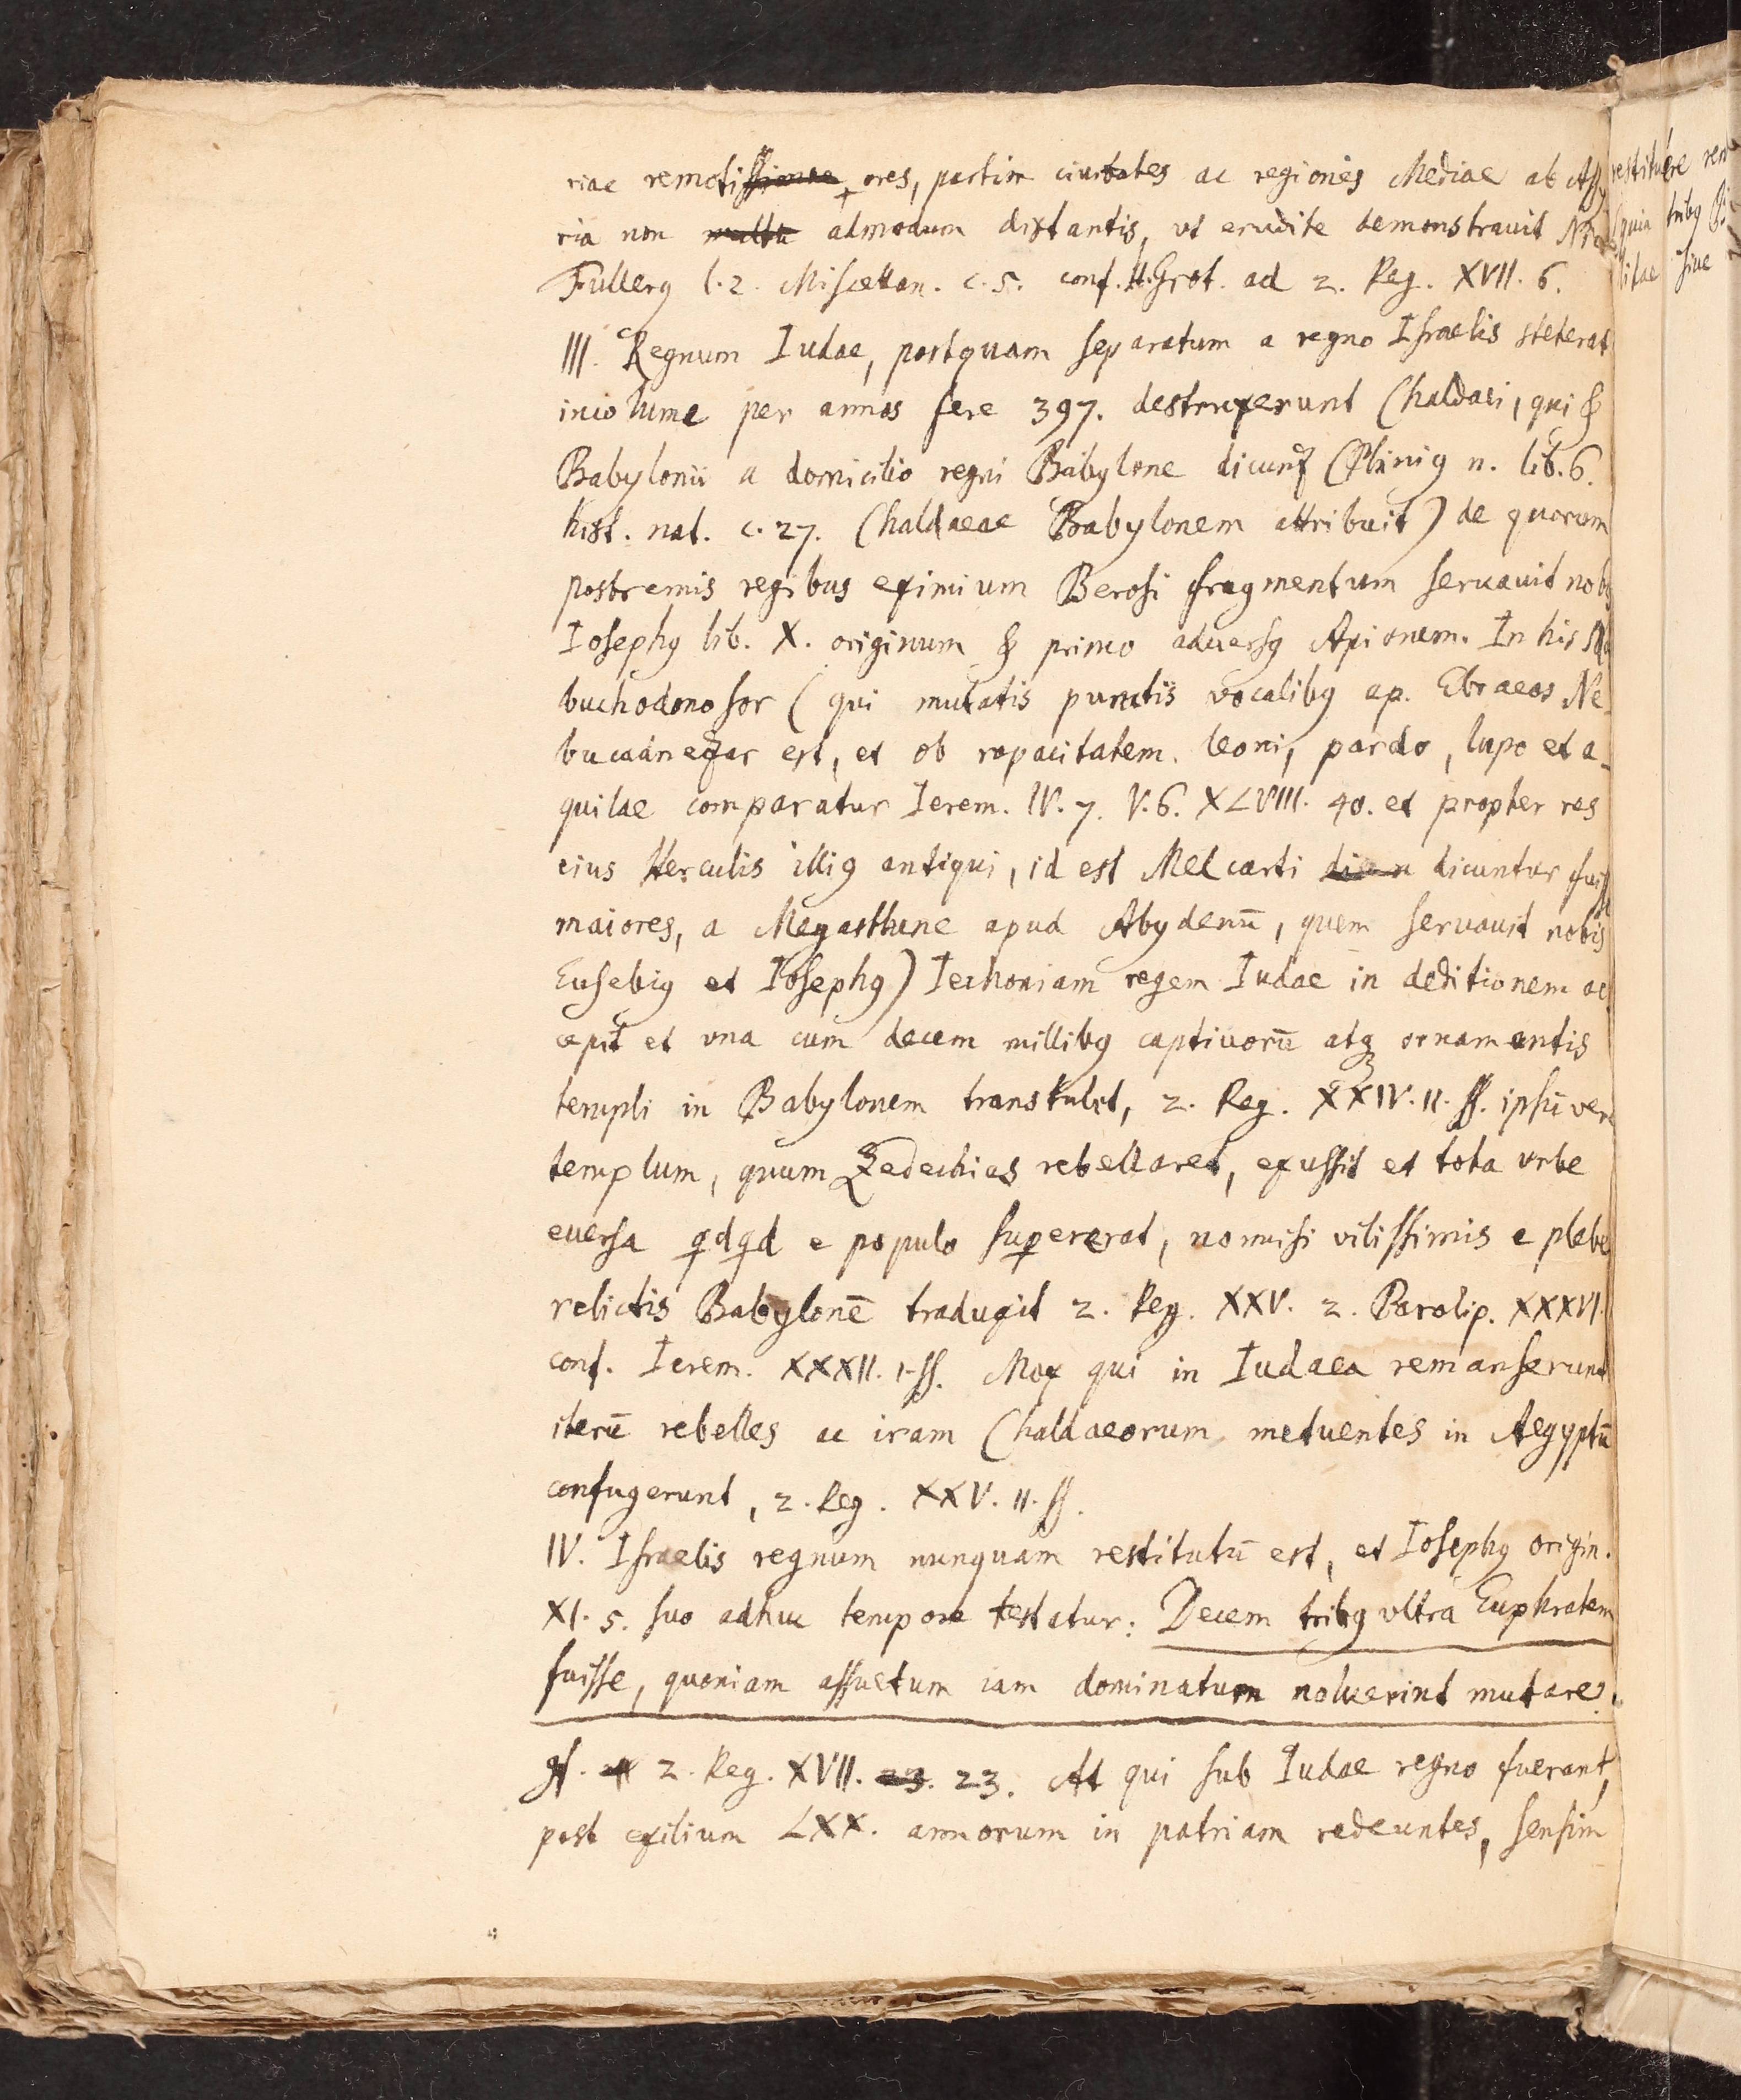 riae remoti~~ssimae~~ ores, partim ciuitates ac regiones Mediae ab Assy
ria non ~~multū~~ admodum distantis, ut erudite demonstrauit Nic
Fullerꝰ l. 2. Miscellan. c. 5. conf. H. Grot. ad 2. Reg. XVII. 6.
III. Regnum Iudae, postquam separatum a regno Israelis steterat
incolume per annos fere 397. destruxerunt Chaldaei, qui &
Babylonii a domicilio regni Babylone dicunt᷑ (Pliniꝰ n. lib. 6.
hist. nat. c. 27. Chaldaeae Babylonem attribuit) de quorum
postremis regibus eximium Berosi fragmentum seruauit nobis
Iosephꝰ lib. X. originum & primo aduersꝰ Apionem. In his
buchodonosor (qui mutatis punctis vocalibꝰ ap. Ebraeos Ne-
bucadnezar est, et ob rapacitatem leoni, pardo, lupo et a-
quilae comparatur Ierem. IV. 7. V. 6. XLVIII. 40. et propter res
eius Herculis illiꝰ antiqui, id est Melcarti ~~dicu~~ dicuntur fuisse
maiores, a Megasthene apud Abydenū, quem seruauit nobis
Eusebiꝰ et Iosephꝰ) Iechoniam regem Iudae in deditionem ac
cepit et vna cum decem millibꝰ captiuorū atqꝫ ornamentis
templi in Babylonem transtulit, 2. Reg. XXIV. 11. ss. ipsū vero
templum, quum Zedechias rebellaret, exussit et tota vrbe
euersa qdqd e populo supererat, nonnisi vilissimis e plebe
relictis Babylonē traduxit 2. Reg. XXV. 2. Paralip. XXXVI.
conf. Ierem. XXXII. 1. ss. Mox qui in Iudaea remanserunt
iterū rebelles ac iram Chaldaeorum metuentes in Aegyptū
confugerunt, 2. Reg. XXV. 11. ss.
IV. Israelis regnum nunquam restitutū est, et Iosephꝰ origin.
XI. 5. suo adhuc tempore testatur: Decem tribꝰ vltra Euphratem
fuisse, quoniam assuetum iam dominatum noluerint mutare.
2. Reg. XVII. ~~23.~~ 23. At qui sub Iudae regno fuerant,
post exilium LXX. annorum in patriam redeuntes, sensim
restituere
quia tribꝰ
litae siue